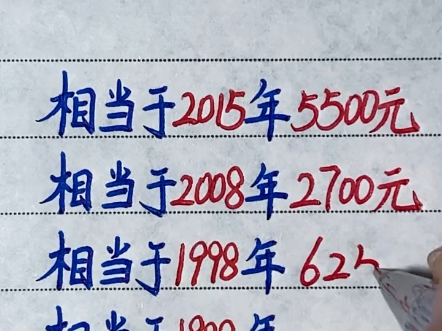 相当于2015年5500元
相当于2008年2700元
相当于1998年62
相当于1990年